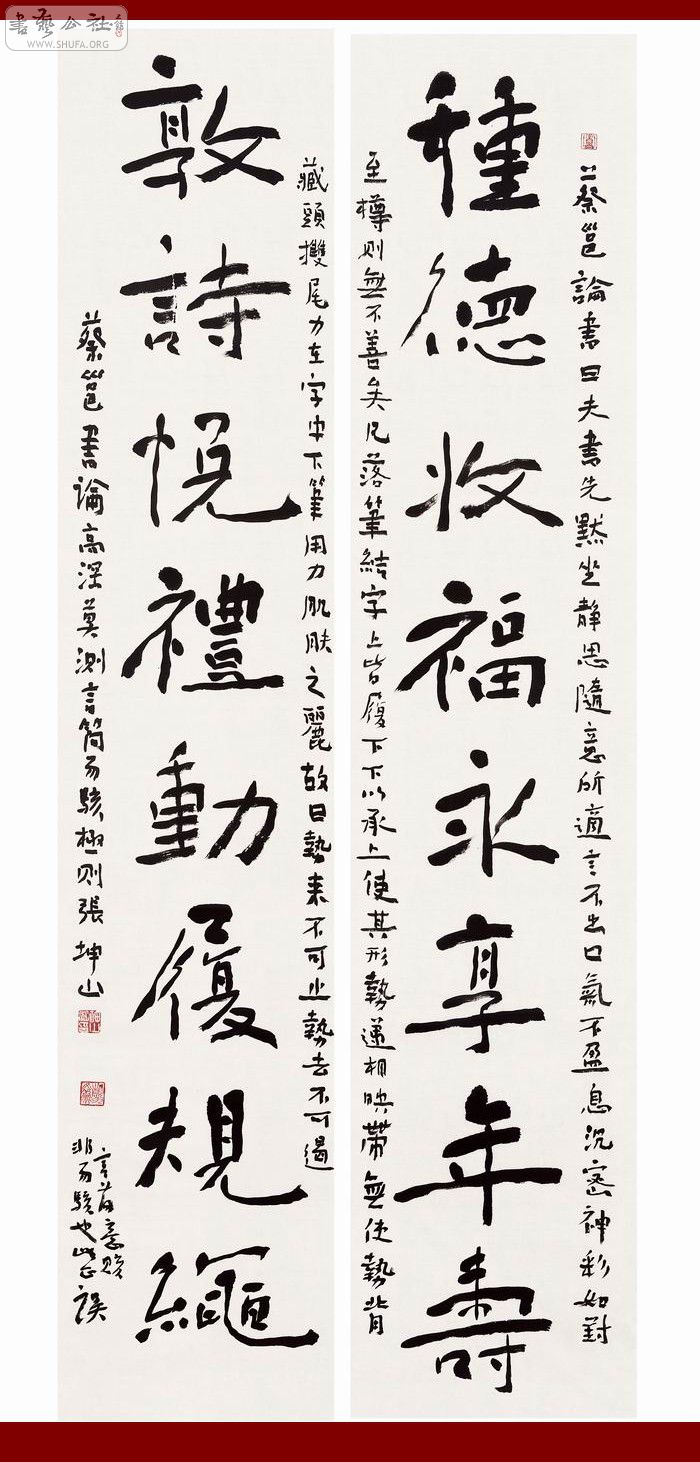 書藝公社
WWW.SHUFA.ORG
蔡邕論書曰夫書先默坐静思隨意所適言不出口氣不盈息沉密神彩如對
種德收福永享年壽
至樽則無不善矣凡落筆結字上皆履下下以承上使其形勢遞相映帶無使勢背
藏頭擭尾力在字中下筆用力肌膚之麗故曰勢来不可止勢去不可遏
敦詩悦禮動履規繩
蔡邕書論高深莫測言簡而駭極則張坤山
言簡意賅
非而駭也誤